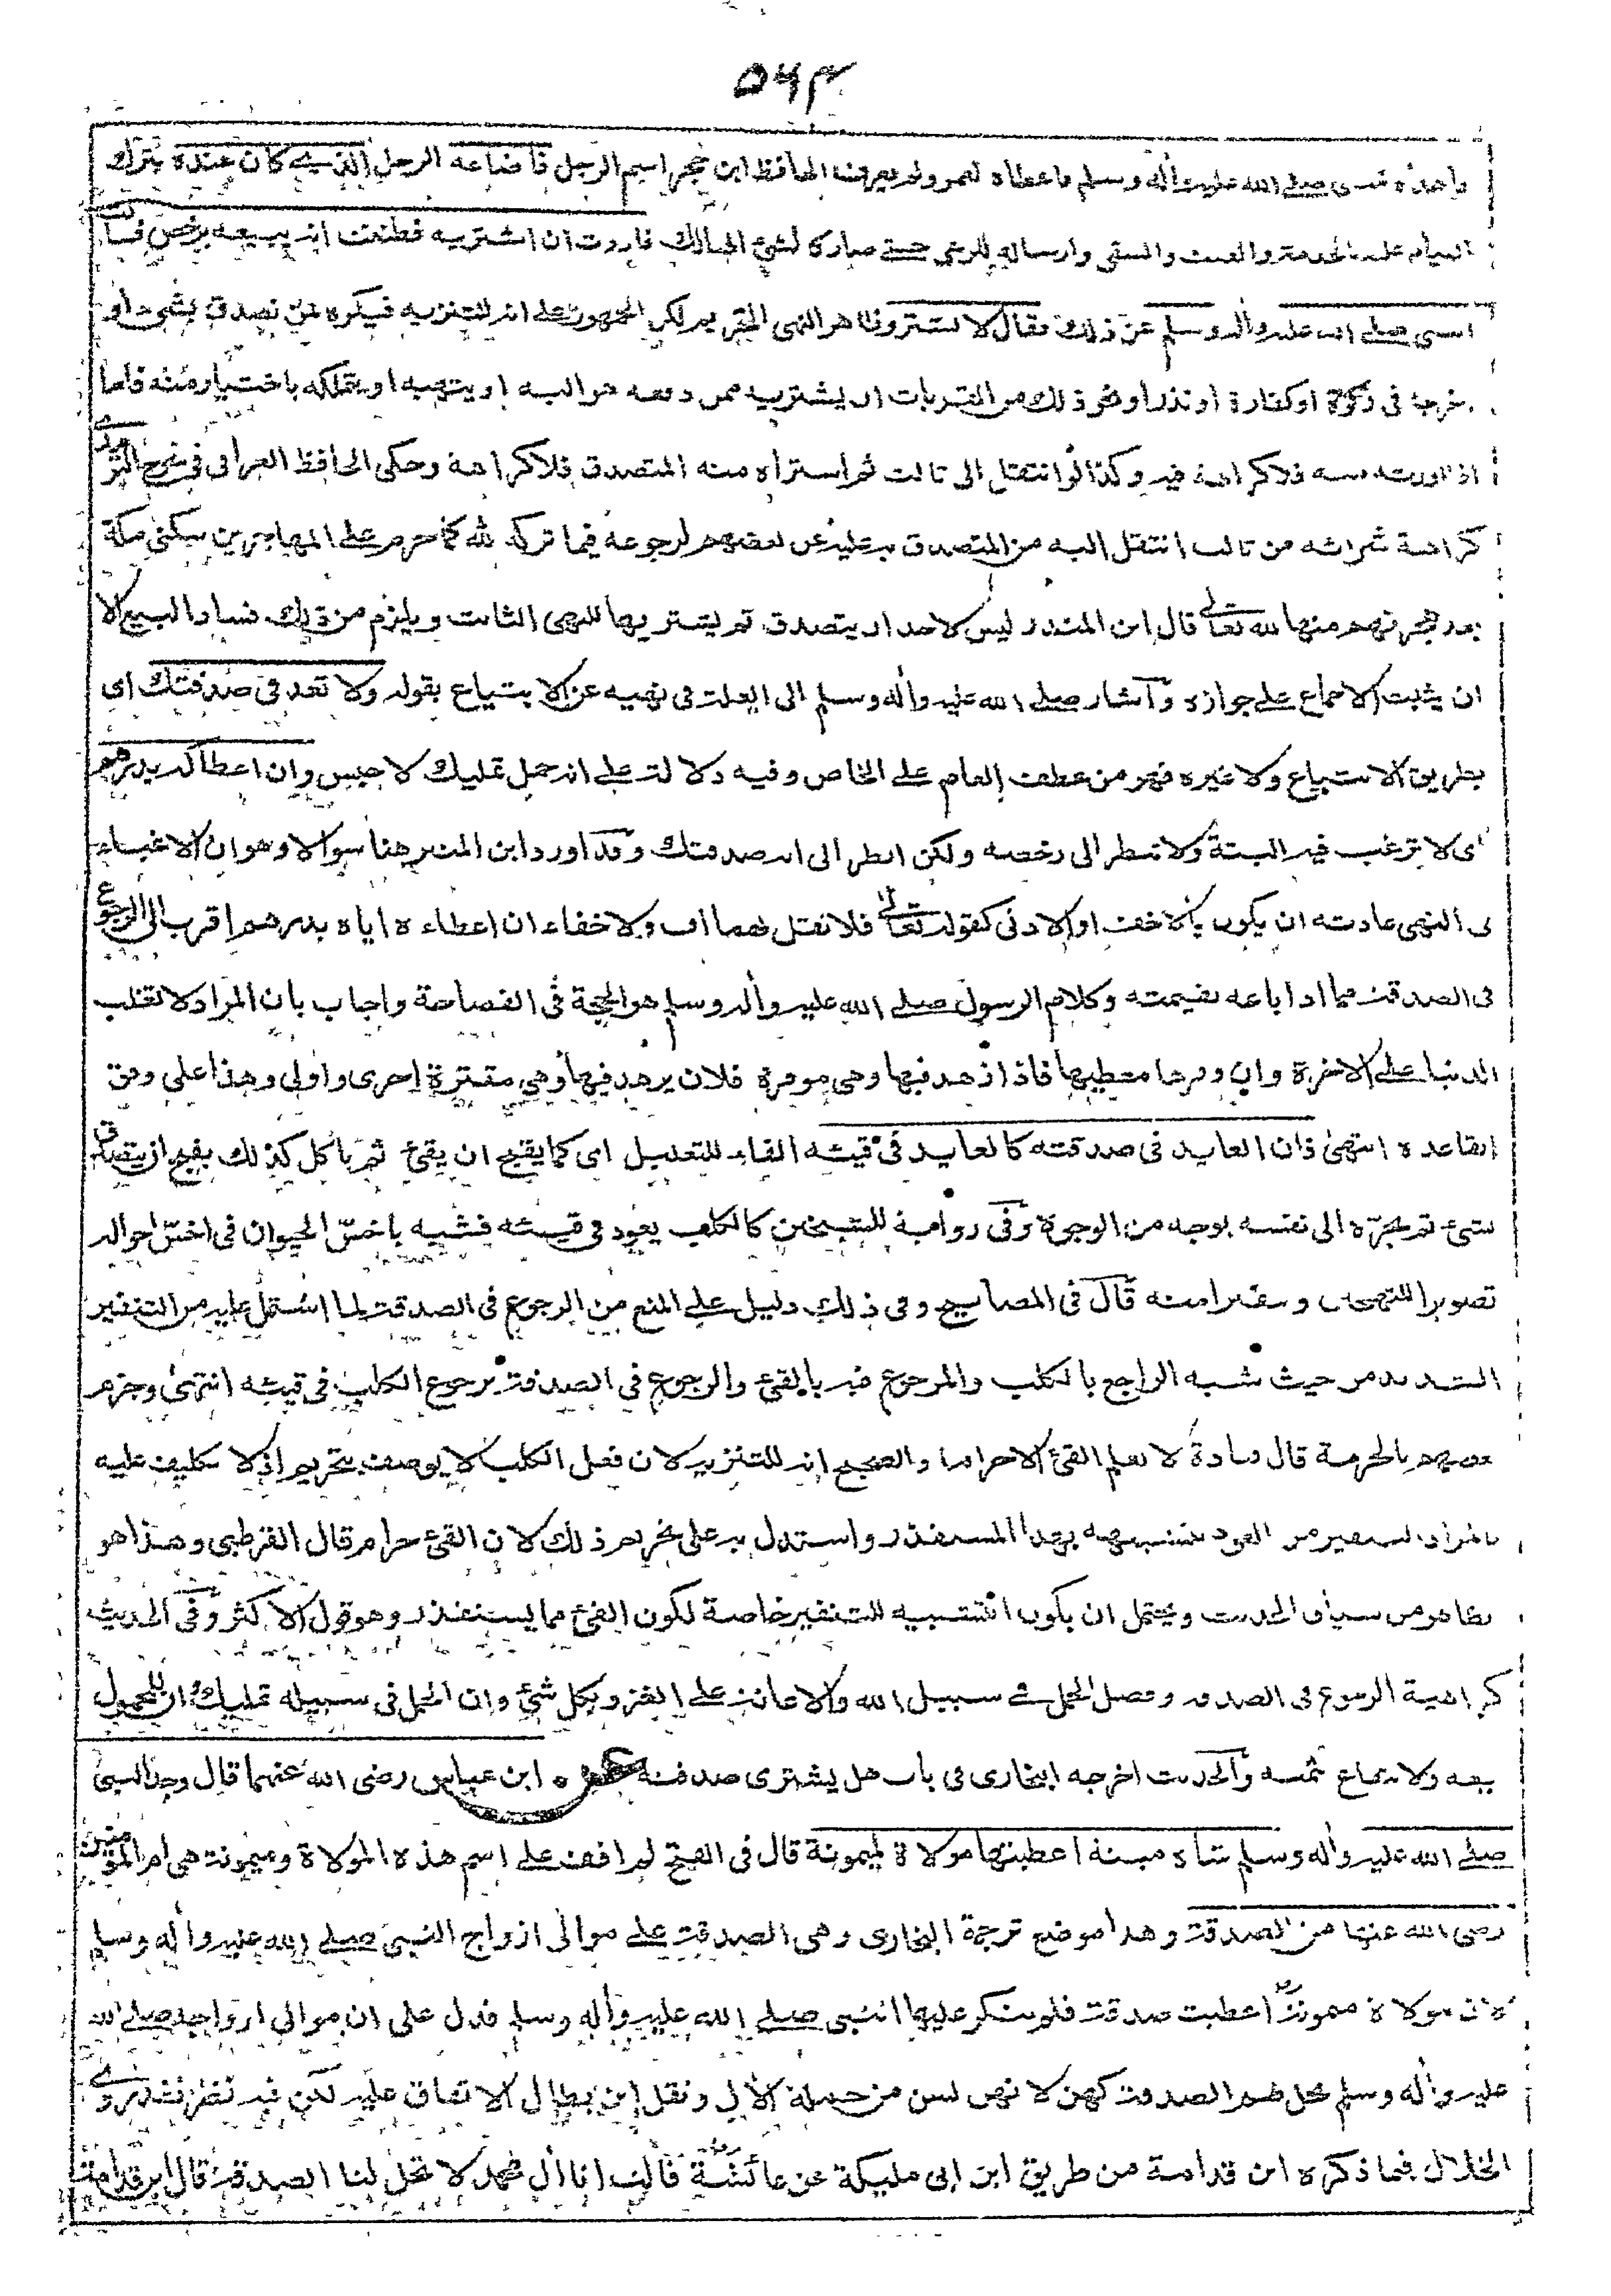 ٥٦٣
واهداه للنبي صلى الله عليه وآله وسلم فاعطاه لعمر ولم يعرف الحافظ ابن حجر اسم الرجل فاضاعه الرجل الذي كان عنده بترك
القيام عليه بالخدمة والعلف والسقي وارساله للرعي حتى صار كالشيء الهالك فاردت ان اشتريه فظننت انه يبيعه برخص فسألت
النبي صلى الله عليه وآله وسلم عن ذلك فقال لا تشتر وظاهر النهي التحريم لكن الجمهور على انه للتنزيه فيكره لمن تصدق بشيء او
اخرجه في زكوة او كفارة او نذر او نحو ذلك من القربات ان يشتريه ممن دفعه هو اليه او يتهبه او يتملكه باختياره منه فاما
اذا ورثه منه فلا كراهة فيه وكذا لو انتقل الى ثالث ثم اشتراه منه المتصدق فلا كراهة وحكى الحافظ العراقي في شرح الترمذي
كراهة شرائه من ثالث انتقل اليه من المتصدق به عليه عن بعضهم لرجوعه فيما تركه لله كما حرم على المهاجرين سكنى مكة
بعد هجرتهم منها لله تعالى قال ابن المنذر ليس لاحد ان يتصدق ثم يشتريها للنهي الثابت ويلزم من ذلك فساد البيع الا
ان يثبت الاجماع على جوازه وأشار صلى الله عليه وآله وسلم الى العلة في نهيه عن الابتياع بقوله ولا تعد في صدقتك اى
بطريق الابتياع ولا غيره فهو من عطف العام على الخاص وفيه دلالة على انه حمل تمليك لا حبس وان اعطاكه بدرهم
اى لا ترغب فيه البتة ولا تنظر الى رخصه ولكن انظر الى انه صدقتك وقد اورد ابن المنير هنا سوالا وهو ان الاغياء
في النهي عادته ان يكون بالاخف او الادنى كقوله تعالى فلا تقل لهما اف ولا خفاء ان اعطاءه اياه بدرهم اقرب الى الرجوع
في الصدقة مما اذا باعه بقيمته وكلام الرسول صلى الله عليه وآله وسلم هو الحجة في الفصاحة واجاب بان المراد لا تغلب
الدنيا على الاخرة وان وفرها معطيها فاذا زهد فيها وهي موفرة فلان يزهد فيها وهي مقترة احرى واولى وهذا على وفق
القاعدة انتهى فان العايد في صدقته كالعايد في قيئه الفاء للتعليل اى كما يقبح ان يقئ ثم ياكل كذلك يقبح ان يتصدق
بشئ ثم يجره الى نفسه بوجه من الوجوه وفي رواية للشيخين كالكلب يعود في قيئه فشبه باخس الحيوان في اخس احواله
تصويرا للتهجين وتنفيرا منه قال في المصابيح وفي ذلك دليل على المنع من الرجوع في الصدقة لما اشتمل عليه من التنفير
الشديد من حيث شبه الراجع بالكلب والمرجوع فيه بالقئ والرجوع في الصدقة برجوع الكلب في قيئه انتهى وجزم
بعضهم بالحرمة قال قتادة لا نعلم القئ الا حراما والصحيح انه للتنزيه لان فعل الكلب لا يوصف بتحريم اذ لا تكليف عليه
فالمراد التنفير من العود بتشبيهه بهذا المستقذر واستدل به على تحريم ذلك لان القئ حرام قال القرطبي وهذا هو
الظاهر من سياق الحديث ويحتمل ان يكون التشبيه للتنفير خاصة لكون القئ مما يستقذر وهو قول الاكثر وفي الحديث
كراهية الرجوع في الصدقة وفضل الحمل في سبيل الله والاعانة على الغزو بكل شئ وان الحمل في سبيله تمليك وان للمحمول
بيعه والانتفاع بثمنه والحديث اخرجه البخاري في باب هل يشترى صدقته عن ابن عباس رضى الله عنهما قال وجد النبي
صلى الله عليه وآله وسلم شاة ميتة اعطيتها مولاة لميمونة قال في الفتح لم اقف على اسم هذه المولاة وميمونة هي ام المؤمنين
رضى الله عنها من الصدقة وهذا موضع ترجمة البخاري وهي الصدقة على موالى ازواج النبي صلى الله عليه وآله وسلم
لان مولاة ميمونة اعطيت صدقة فلم ينكر عليها النبي صلى الله عليه وآله وسلم فدل على ان موالى ازواجه صلى الله
عليه وآله وسلم تحل لهم الصدقة كهن لانهن لسن من جملة الآل ونقل ابن بطال الاتفاق عليه لكن فيه نظر فقد روى
الخلال فيما ذكره ابن قدامة من طريق ابن ابى مليكة عن عائشة قالت انا آل محمد لا تحل لنا الصدقة قال ابن قدامة